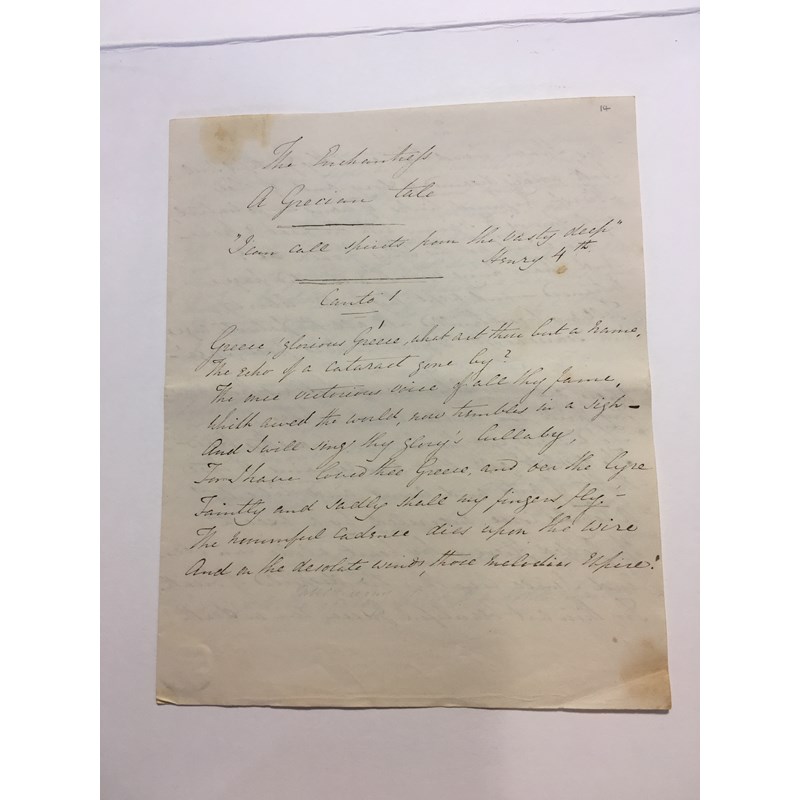 14
The Enchantress
A Grecian tale
"I can call spirits from the vasty deep"
Henry 4th
Canto 1
Greece, glorious Greece, what art thou but a name,
The echo of a cataract gone by?
The once victorious voice of all thy fame,
Which awed the world, now trembles in a sigh –
And I will sing thy glory's lullaby,
For I have loved thee Greece, and oer the lyre
Faintly and sadly shall my fingers fly, –
The mournful cadence dies upon the wire
And on the desolate winds, those melodies expire!